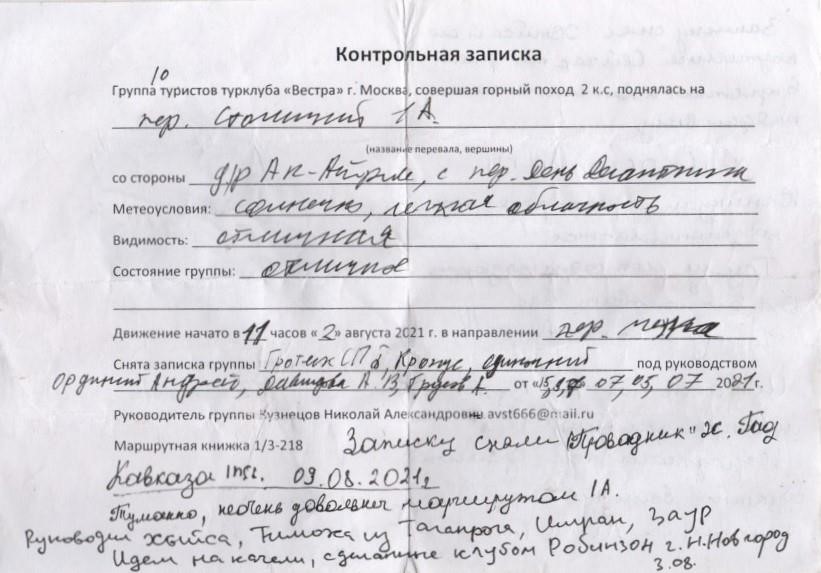 Контрольная записка
10
Группа туристов турклуба «Вестра» г. Москва, совершая горный поход 2 к.с, поднялась на
пер. Столичный 1А
(название перевала, вершины)
со стороны д/р Ак-Айры, с пер. День
Метеоусловия: солнечно, легкая облачность
Видимость: отличная
Состояние группы: отличное
Движение начато в 11 часов «2» августа 2021 г. в направлении пер.
Снята записка группы Гротеск СПб, Крокус, одиночный под руководством
Андрей, Давыдова А. В, А. от « 07, 05, 07 2021 г.
Руководитель группы Кузнецов Николай Александрович avst666@mail.ru
Маршрутная книжка 1/3-218 Записку сняли "Проводник" ж. Гад
Кавказа 09.08.2021г
Туманно, неочень довольнег маршрутом 1А.
Руководил Тимоха из Таганрога, Имран, Заур
Идем на качели, сделанные клубом Робинзон г. Н.Новгород
3.08.